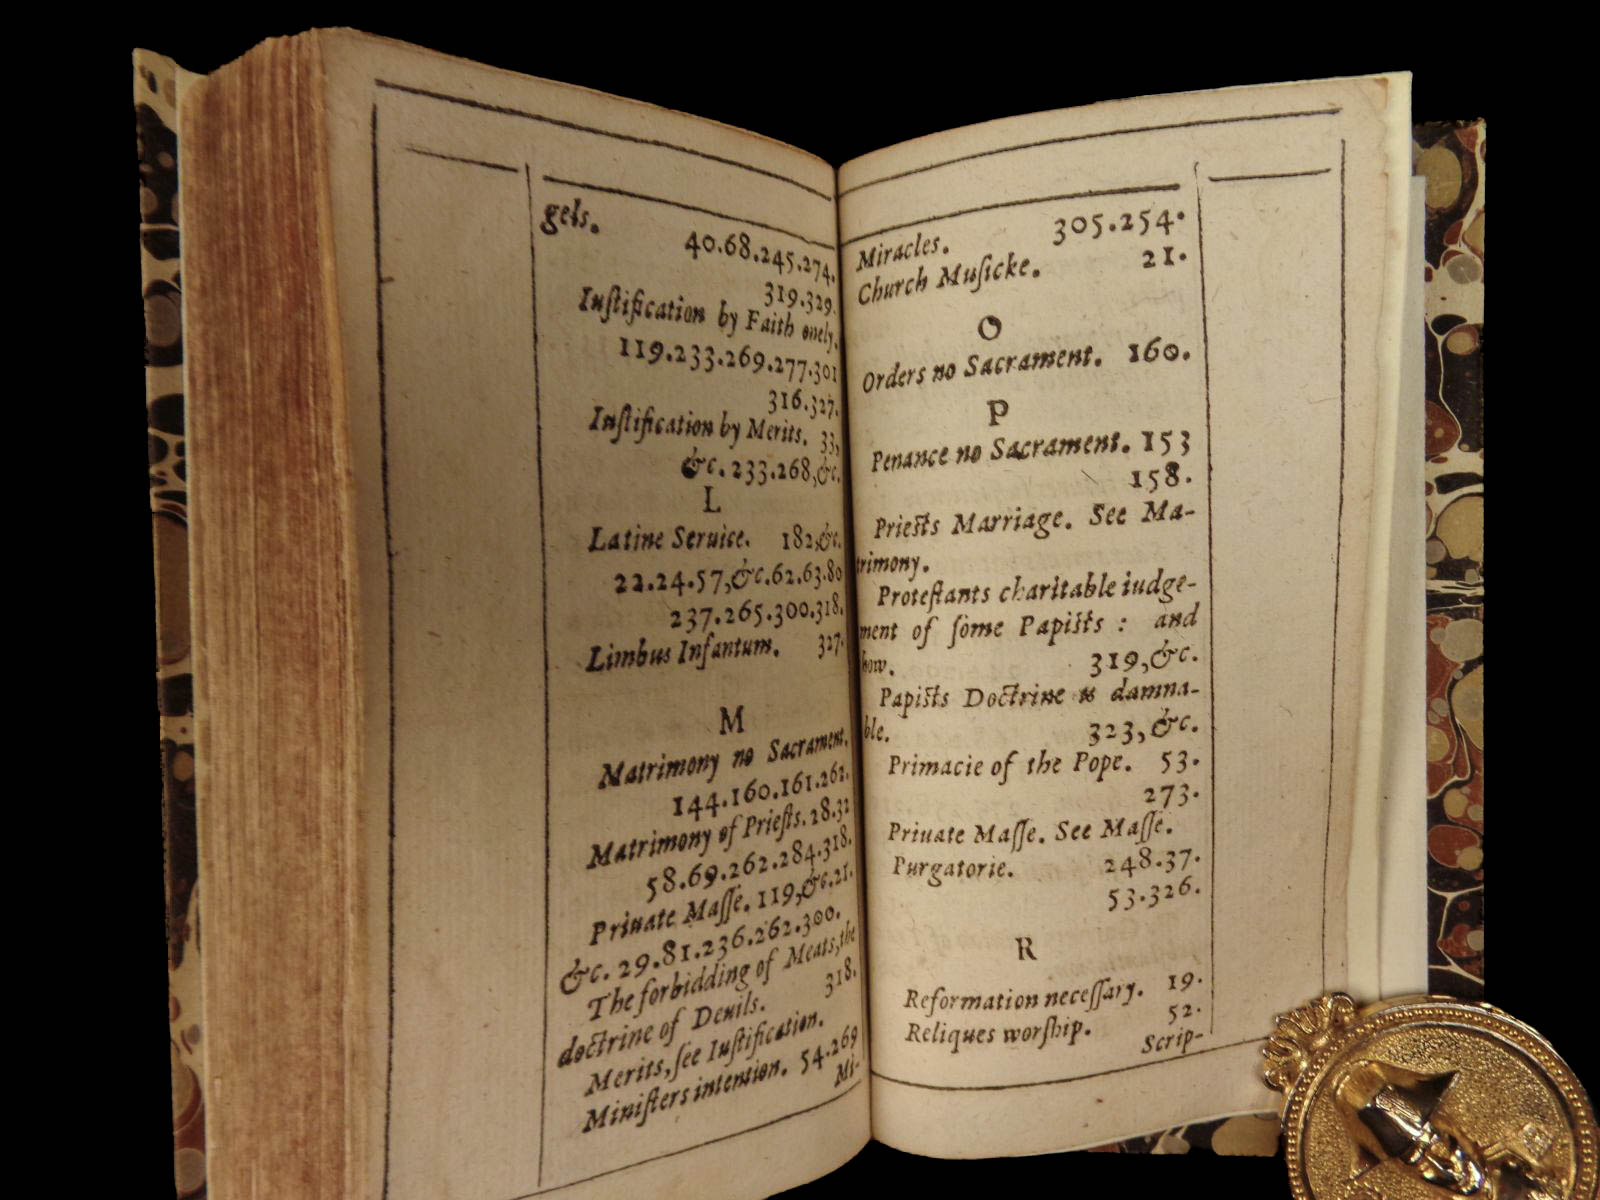 gels.
40.68.245.274.
319.329.
Iuſtification by Faith onely.
119.233.269.277.301
316.327.
Iuſtification by Merits. 33,
&c. 233.268,&c.
L
Latine Seruice. 182,&c.
22.24.57,&c.62.63.80
237.265.300.318.
Limbus Infantum. 327.
M
Matrimony no Sacrament.
144.160.161.262.
Matrimony of Prieſts. 28.32
58.69.262.284.318.
Priuate Maſſe. 119,&c.21.
&c. 29.81.236.262.300.
The forbidding of Meats, the
doctrine of Deuils. 318.
Merits, ſee Iuſtification.
Miniſters intention. 54.269
Mi-
Miracles. 305.254.
Church Muſicke. 21.
O
Orders no Sacrament. 160.
P
Penance no Sacrament. 153
158.
Prieſts Marriage. See Ma-
trimony.
Proteſtants charitable iudge-
ment of ſome Papiſts : and
how. 319,&c.
Papiſts Doctrine is damna-
ble. 323,&c.
Primacie of the Pope. 53.
273.
Priuate Maſſe. See Maſſe.
Purgatorie. 248.37.
53.326.
R
Reformation neceſſary. 19.
Reliques worſhip. 52.
Scrip-